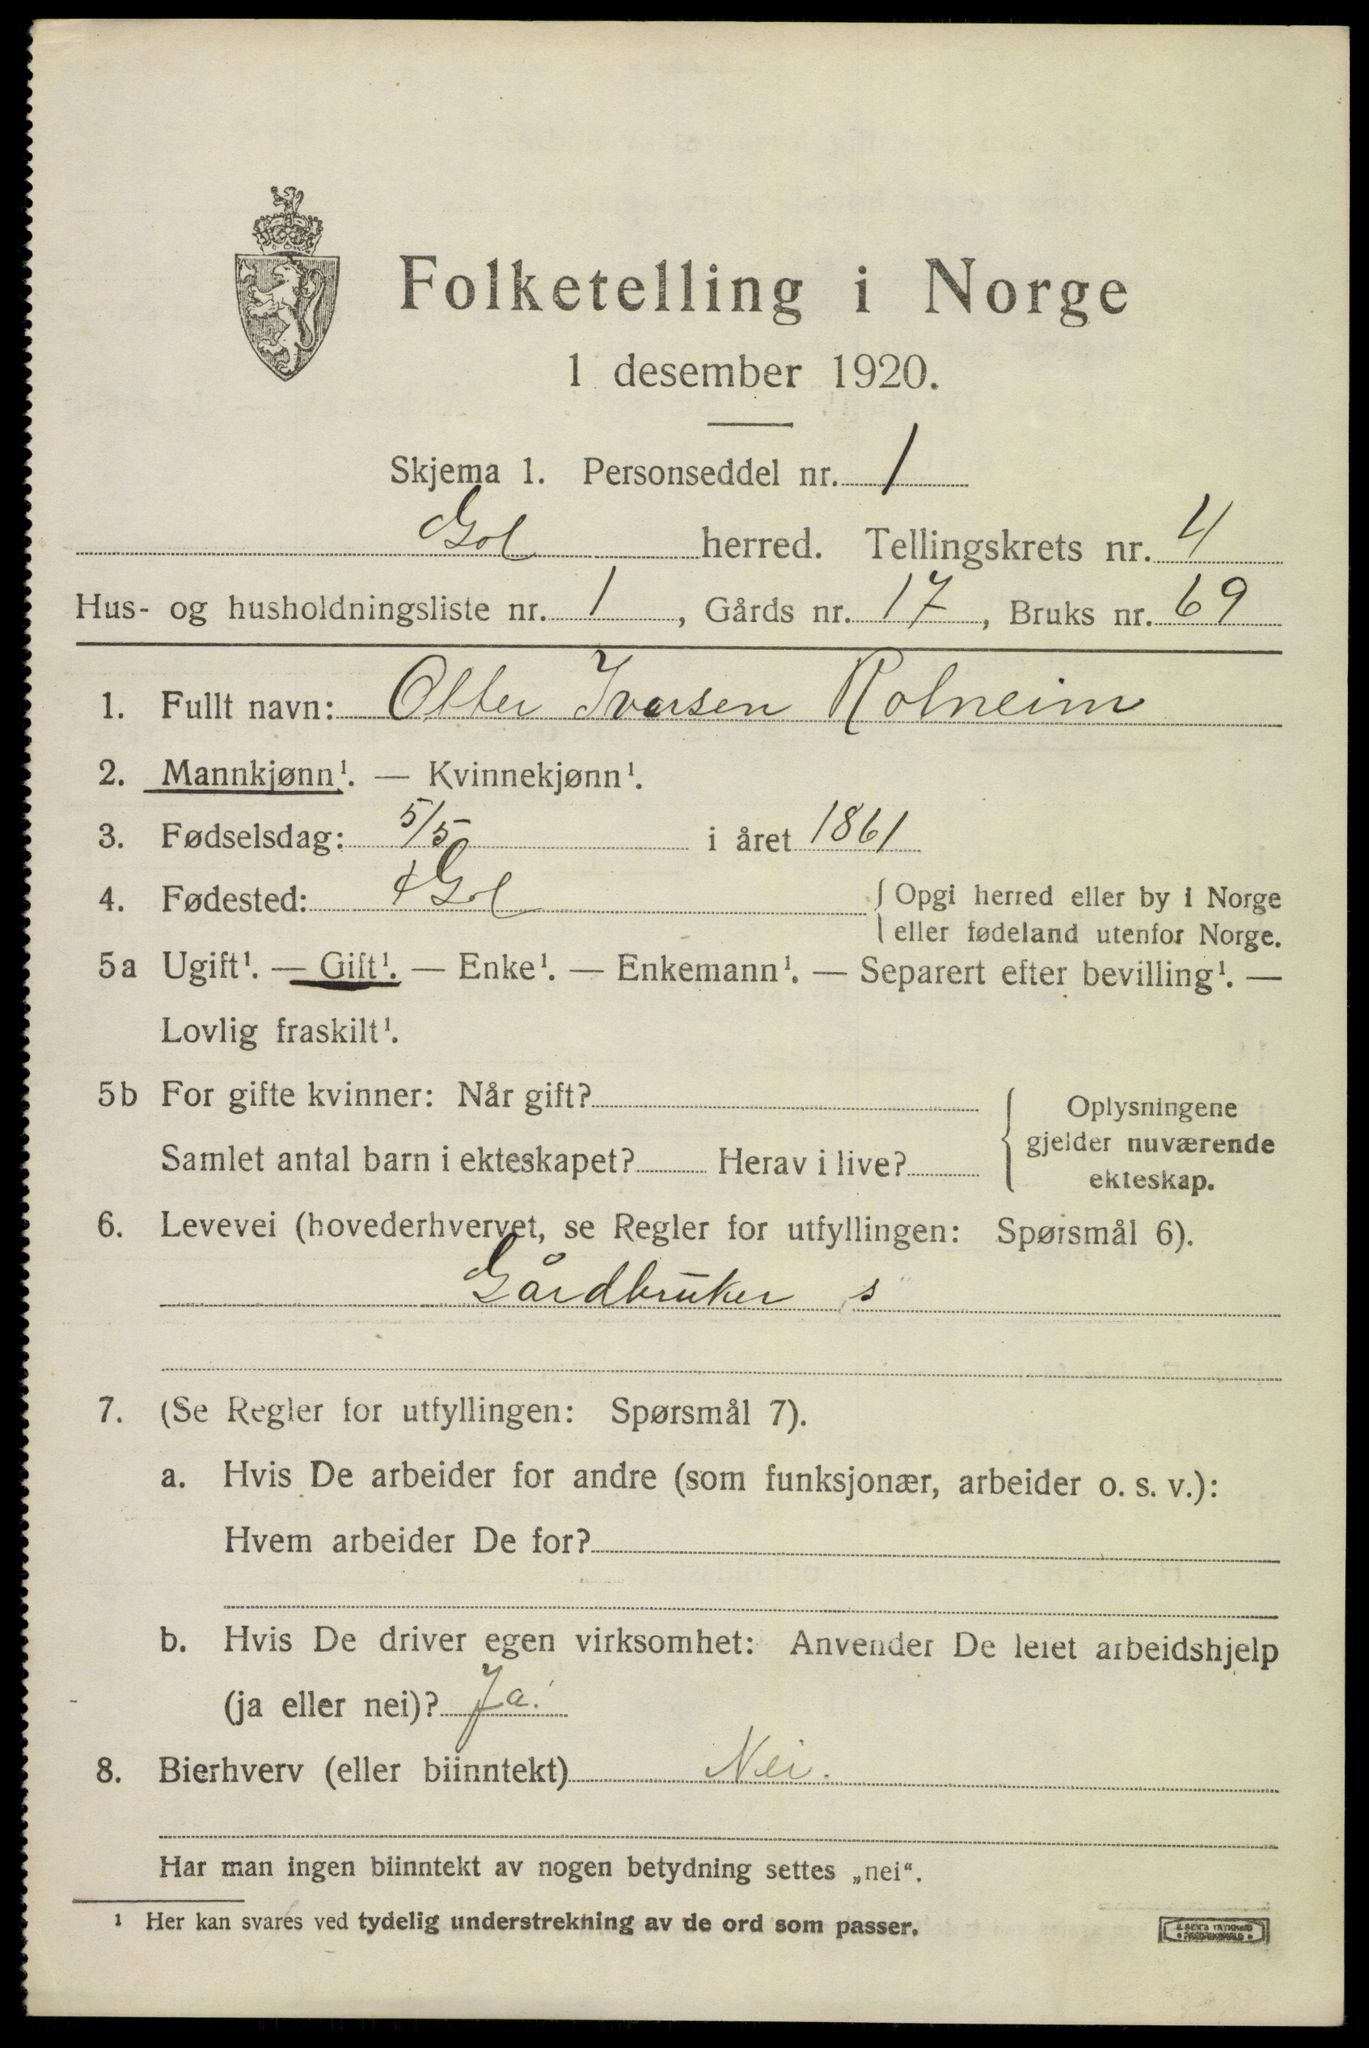 Folketelling i Norge
1 desember 1920.
Skjema 1. Personseddel nr. 1
Gol herred. Tellingskrets nr. 4
Hus- og husholdningsliste nr. 1, Gårds nr. 17, Bruks nr. 69
1. Fullt navn: Otter Iversen Rotneim
2. Mannkjønn¹. — Kvinnekjønn¹.
3. Fødselsdag: 5/5 i året 1861
4. Fødested: Gol { Opgi herred eller by i Norge
eller fødeland utenfor Norge.
5a Ugift¹. — Gift¹. — Enke¹. — Enkemann¹. — Separert efter bevilling¹. —
Lovlig fraskilt¹.
5b For gifte kvinner: Når gift?
Samlet antal barn i ekteskapet? Herav i live?
{ Oplysningene
gjelder nuværende
ekteskap.
6. Levevei (hovederhvervet, se Regler for utfyllingen: Spørsmål 6).
Gårdbruker s
7. (Se Regler for utfyllingen: Spørsmål 7).
a. Hvis De arbeider for andre (som funksjonær, arbeider o. s. v.):
Hvem arbeider De for?
b. Hvis De driver egen virksomhet: Anvender De leiet arbeidshjelp
(ja eller nei)? Ja.
8. Bierhverv (eller biinntekt) Nei.
Har man ingen biinntekt av nogen betydning settes „nei“.
¹ Her kan svares ved tydelig understrekning av de ord som passer.